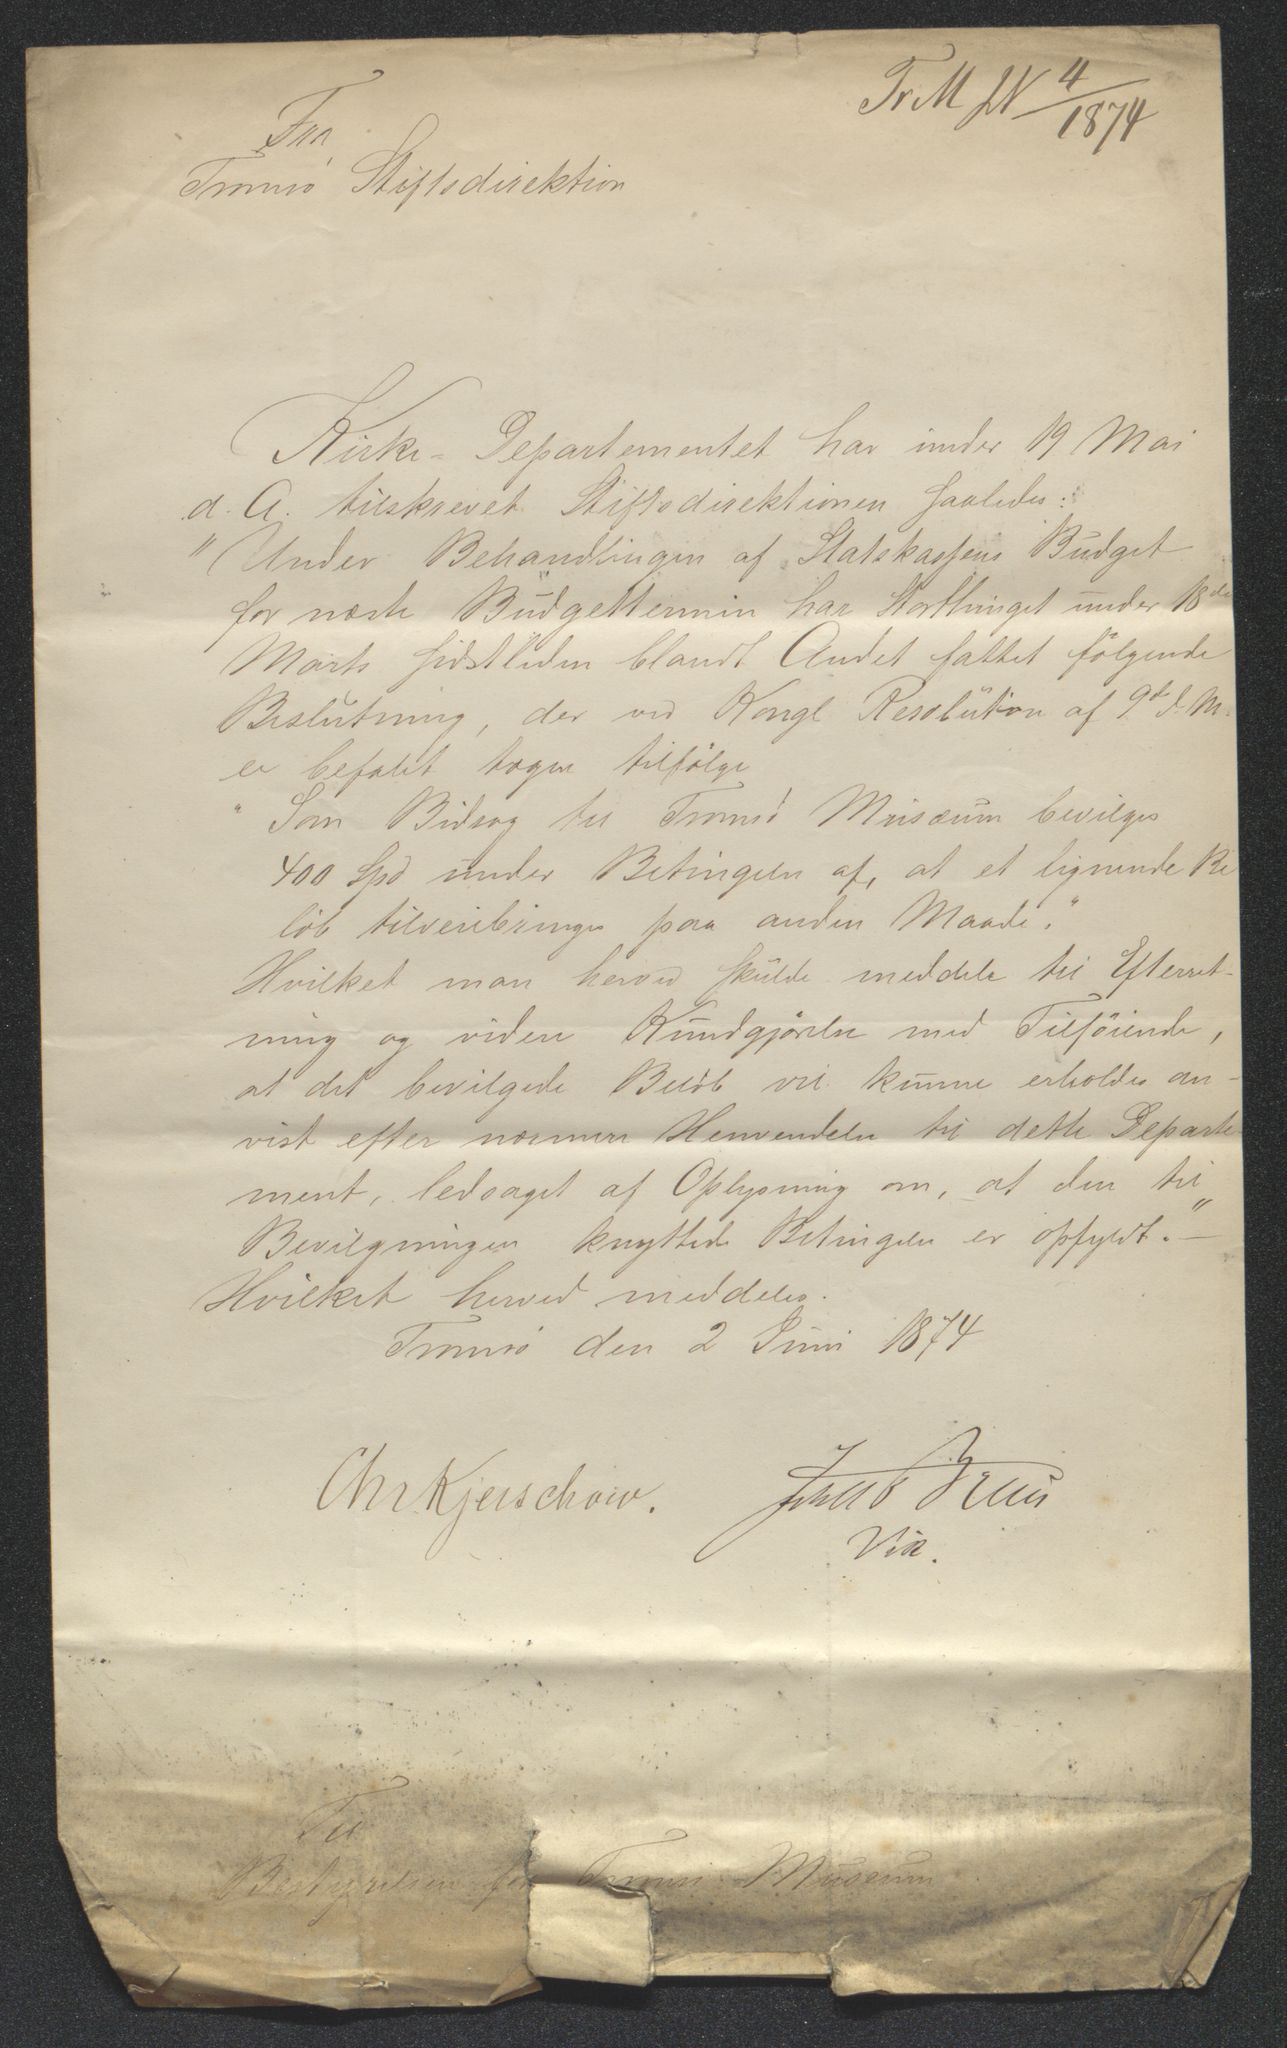 Tr M JN 4/1874
Fra
Tromsö Stiftsdirektion
Kirke-Departementet har under 19 Mai
d. A. tilskrevet Stiftsdirektionen saaledes:
"Under Behandlingen af Statskassens Budget
for næste Budgettermin har Storthinget under 18de
Marts sidstleden blandt Andet fattet følgende
Beslutning, der ved Kongl Resolution af 9de d. M.
er befalet tagen tilfölge
"Som Bidrag til Tromsö Museum bevilges
400 Spd under Betingelse af, at et lignende Be
löb tilveiebringes paa anden Maade."
Hvilket man herved skulde meddele til Efterret-
ning og videre Kundgjörelse med Tilföiende,
at det bevilgede Belöb vil kunne erholdes an-
vist efter nærmere Henvendelse til dette Departe
ment, ledsaget af Oplysning om, at den til
Bevilgningen knyttede Betingelse er opfyldt."-
Hvilket herved meddeles.
Tromsö den 2 Juni 1874
Chr Kjerschow.
Vik.
Til
Bestyrelsen for Tromsö Museum